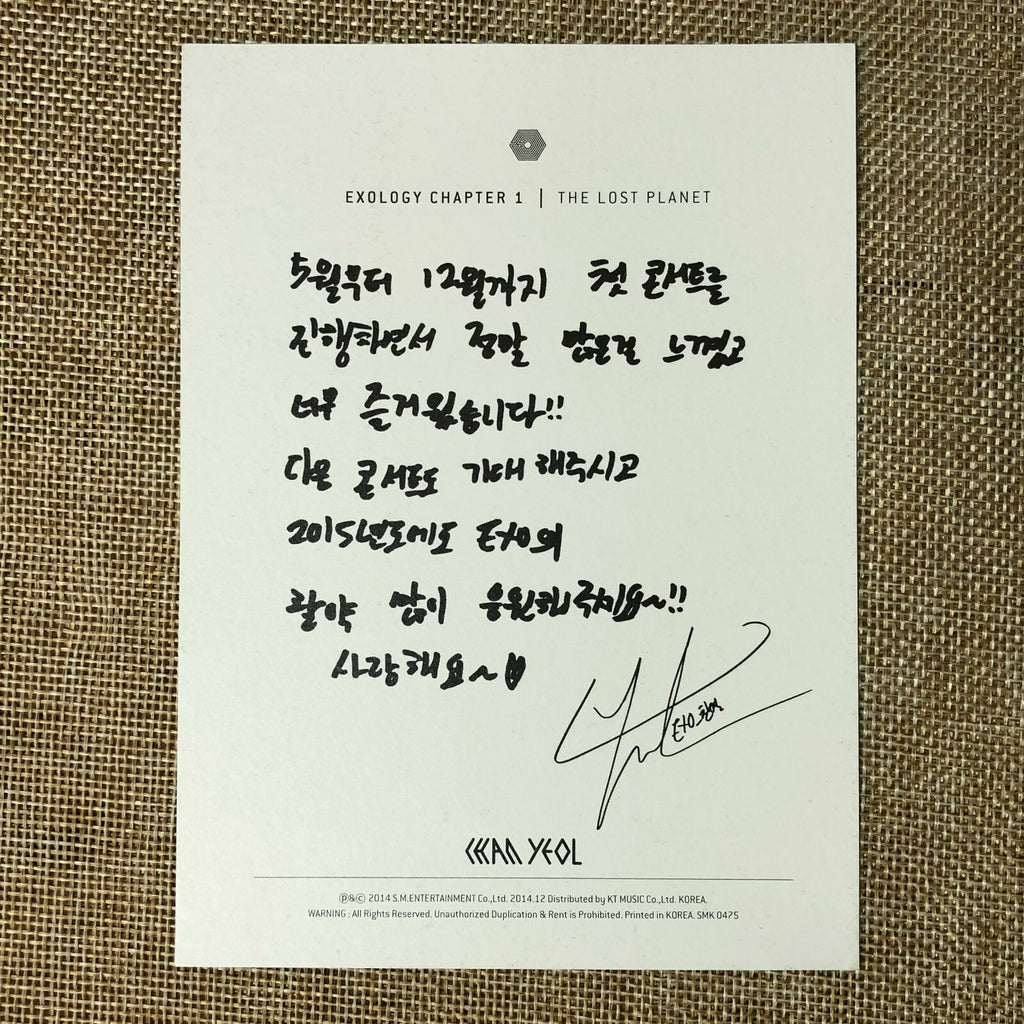 EXOLOGY CHAPTER 1 | THE LOST PLANET
5월부터 12월까지 첫 콘서트를
진행하면서 정말 많은걸 느꼈고
너무 즐거웠습니다!!
다음 콘서트도 기대해주시고
2015년도에도 EXO의
활약 많이 응원해주세요~!!
사랑해요~♥
EXO 찬열
CHAN YEOL
℗&© 2014 S.M.ENTERTAINMENT Co.,Ltd. 2014.12 Distributed by KT MUSIC Co.,Ltd. KOREA.
WARNING : All Rights Reserved. Unauthorized Duplication & Rent is Prohibited. Printed in KOREA. SMK 0475